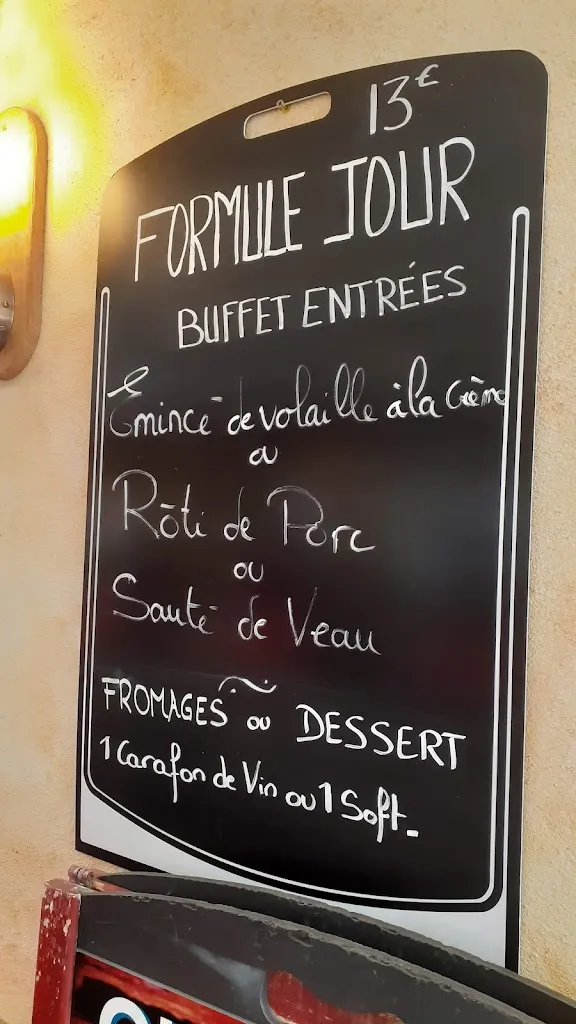 13€
FORMULE JOUR
BUFFET ENTRÉES
Émincé de volaille à la Crème
ou
Rôti de Porc
ou
Sauté de Veau
FROMAGES ou DESSERT
1 Carafon de Vin ou 1 Soft